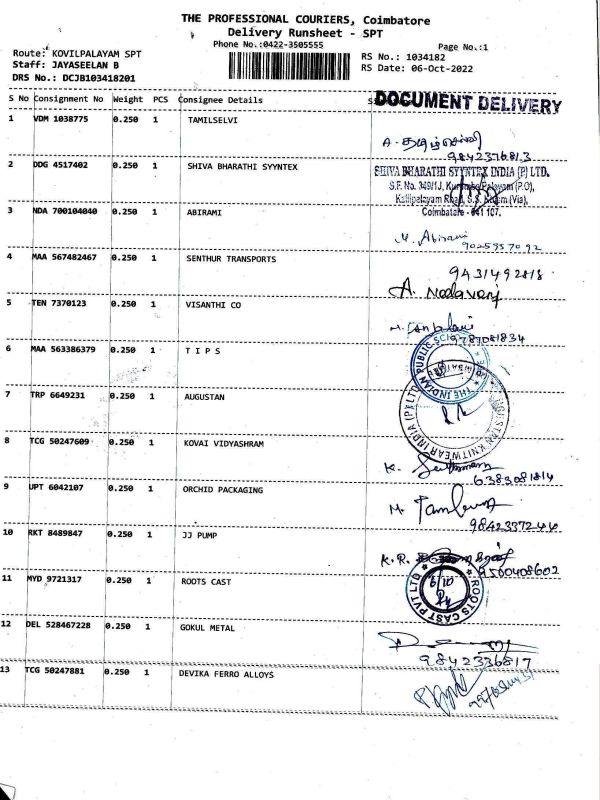 THE PROFESSIONAL COURIERS, Coimbatore
Delivery Runsheet - SPT
Phone No.:0422-3505555
Page No.:1
Route: KOVILPALAYAM SPT
RS No.: 1034182
Staff: JAYASEELAN B
RS Date: 06-Oct-2022
DRS No.: DCJB103418201
S No Consignment No Weight PCS Consignee Details
DOCUMENT DELIVERY
1 VDM 1038775 0.250 1 TAMILSELVI
9842376813
2 DDG 4517402 0.250 1 SHIVA BHARATHI SYYNTEX
SHIVA BHARATHI SYYNTEX INDIA (P) LTD.
S.F. No. 349/1J,
Kallipalayam Road, S.S. Kulam (Via),
Coimbatore - 641 107.
3 NDA 700104040 0.250 1 ABIRAMI
M. Abirami
4 MAA 567482467 0.250 1 SENTHUR TRANSPORTS
9431492818
5 TEN 7370123 0.250 1 VISANTHI CO
9787081834
6 MAA 563386379 0.250 1 T I P S
THE INDIAN PUBLIC
7 TRP 6649231 0.250 1 AUGUSTAN
KNITWEAR INDIA (P) LTD
8 TCG 50247609 0.250 1 KOVAI VIDYASHRAM
6383081814
9 UPT 6042107 0.250 1 ORCHID PACKAGING
9842337244
10 RKT 8489847 0.250 1 JJ PUMP
K.R.
9500408602
11 MYD 9721317 0.250 1 ROOTS CAST
ROOTS CAST PVT LTD
6/10
12 DEL 528467228 0.250 1 GOKUL METAL
9842336817
13 TCG 50247881 0.250 1 DEVIKA FERRO ALLOYS